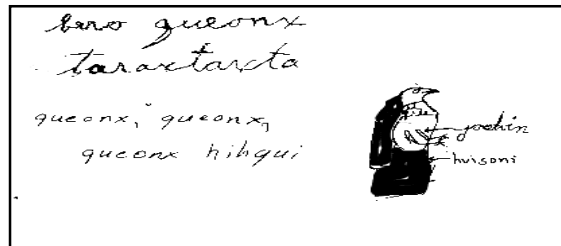 bero queonx
taraxtarcta
queonx, queonx,
queonx hihqui
joshin
huisoni